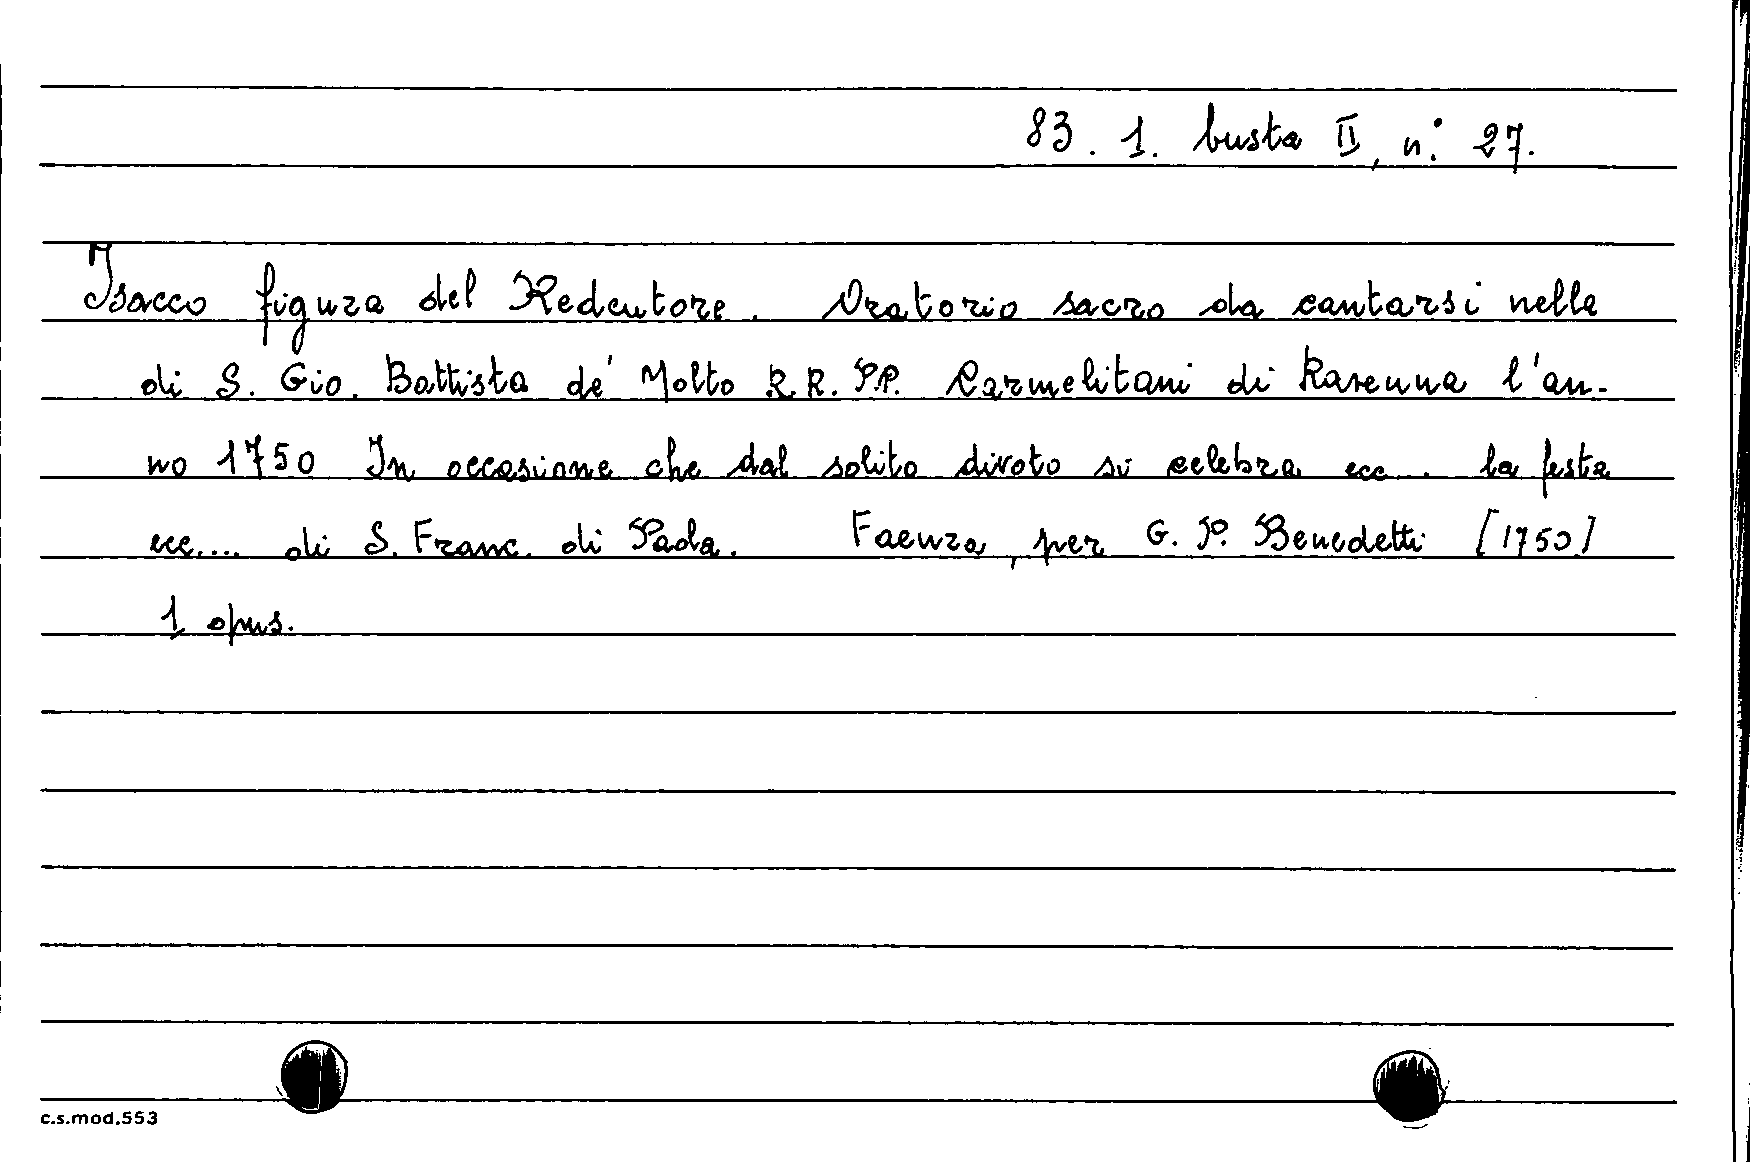 83. 1. busta II, n.° 27.
Isacco figura del Redentore. Oratorio sacro da cantarsi nella
di S. Gio. Battista de' Molto R.R. P.P. Carmelitani di Ravenna l'an-
no 1750 In occasione che dal solito divoto si celebra ecc.. la festa
ecc.... di S. Franc. di Paola. Faenza, per G. P. Benedetti [1750]
1 opus.
c.s.mod.553